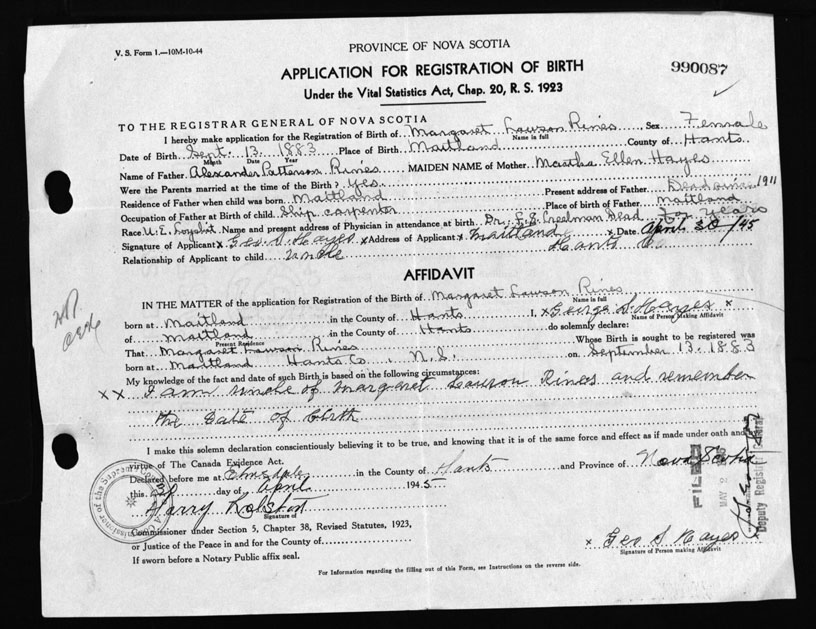 V. S. Form 1.—10M-10-44
PROVINCE OF NOVA SCOTIA
APPLICATION FOR REGISTRATION OF BIRTH
990087
Under the Vital Statistics Act, Chap. 20, R. S. 1923
TO THE REGISTRAR GENERAL OF NOVA SCOTIA
I hereby make application for the Registration of Birth of Margaret Lawson Rines Sex Female
Name in full
Date of Birth Sept. 13. 1883 Place of Birth Maitland County of Hants
Month Day Year
Name of Father Alexander Patterson Rines MAIDEN NAME of Mother Martha Ellen Hayes
Were the Parents married at the time of the Birth? Yes. Present address of Father Dead 1911
Residence of Father when child was born Maitland Place of birth of Father Maitland
Occupation of Father at Birth of child Ship carpenter
Race U. E. Loyalist Name and present address of Physician in attendance at birth Dr. F. E. Creelman Dead years
Signature of Applicant x Geo. S. Hayes x Address of Applicant x Maitland x Date April 30/45
Relationship of Applicant to child Uncle Hants Co
AFFIDAVIT
IN THE MATTER of the application for Registration of the Birth of Margaret Lawson Rines
Name in full
born at Maitland in the County of Hants I, x George S. Hayes x
Name of Person Making Affidavit
of Maitland in the County of Hants do solemnly declare:
Present Residence
That Margaret Lawson Rines Whose Birth is sought to be registered was
born at Maitland Hants Co., N. S. on September 13. 1883
My knowledge of the fact and date of such Birth is based on the following circumstances:
x x I am uncle of Margaret Lawson Rines and remember
the date of birth
I make this solemn declaration conscientiously believing it to be true, and knowing that it is of the same force and effect as if made under oath and by
virtue of The Canada Evidence Act.
Declared before me at Elmsdale in the County of Hants and Province of Nova Scotia
this 30 day of April 1945
Harry
Signature of
Commissioner under Section 5, Chapter 38, Revised Statutes, 1923,
or Justice of the Peace in and for the County of
If sworn before a Notary Public affix seal.
x Geo S Hayes
Signature of Person making Affidavit
For Information regarding the filling out of this Form, see Instructions on the reverse side.
FILED
MAY 2
Deputy Registrar General